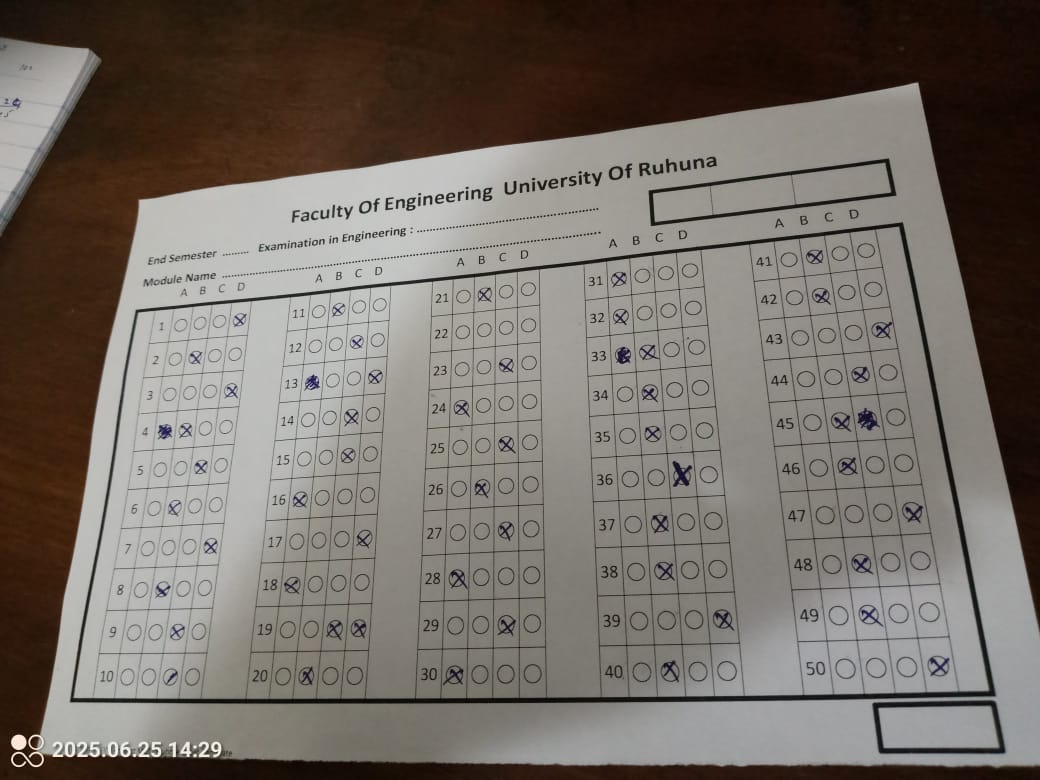 Faculty Of Engineering University Of Ruhuna
End Semester ......... Examination in Engineering : ..................................................
Module Name ..........................................................................................
A B C D
1
2
3
4
5
6
7
8
9
10
A B C D
11
12
13
14
15
16
17
18
19
20
A B C D
21
22
23
24
25
26
27
28
29
30
A B C D
31
32
33
34
35
36
37
38
39
40
A B C D
41
42
43
44
45
46
47
48
49
50
2025.06.25 14:29